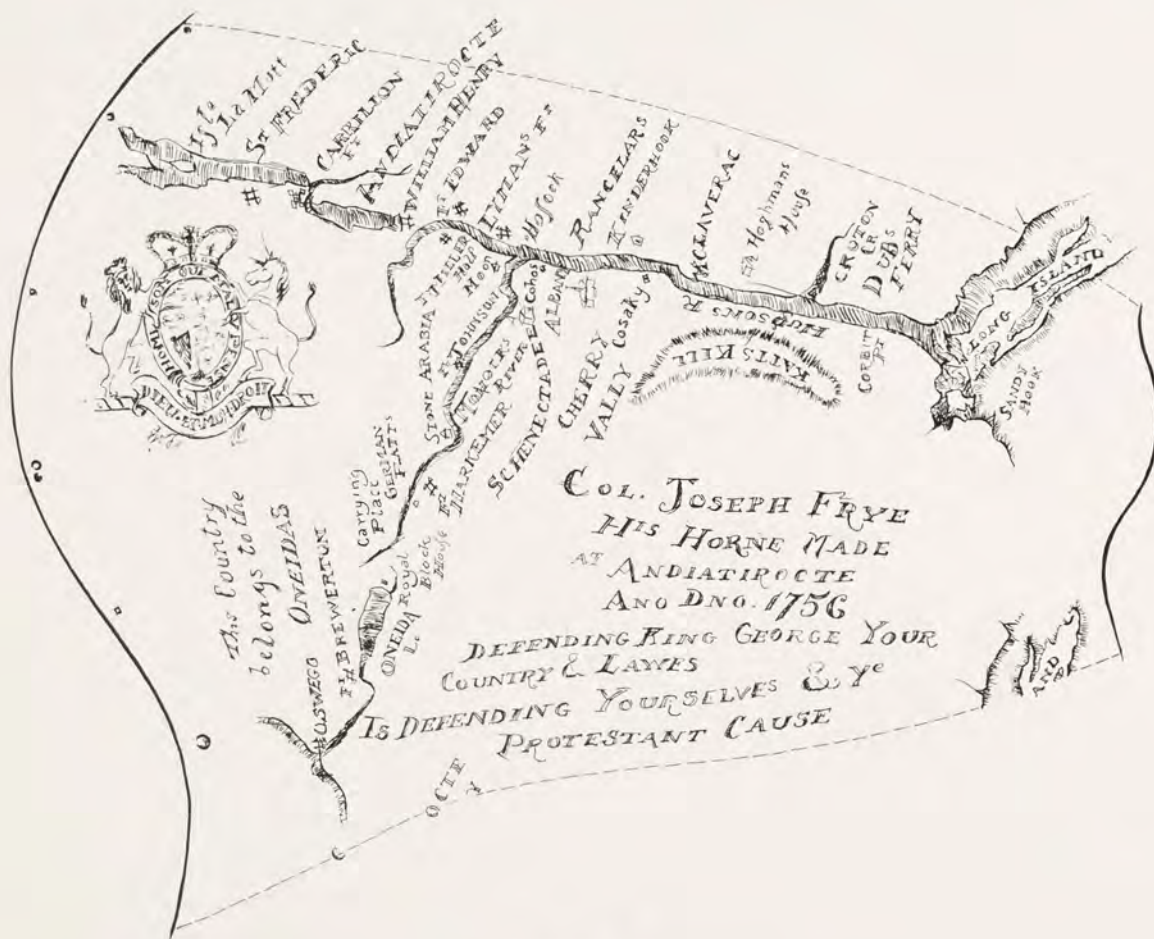 Isle
La Mott
St FREDERIC
CARRILLON
Ft
ANDIATIROCTE
WILLIAM HENRY
Ft EDWARD
LYMANS Ft
MILLER
Half
Moon
Hosock
RANCELARS
KINDERHOOK
McCLAVERAC
Hoghmans
House
CROTON
CR
DUBs
FERRY
LONG
ISLAND
SANDY
HOOK
HUDSONS R
CORBITT
PT
KATTS KILL
Cosaky
ALBANY
Cohos
STONE ARABIA
Ft JOHNSON
River
SCHENECTADE
CHERRY
VALLY
Ft HARKEMER
GERMAN
FLATTS
Carrying
Place
Royal
Block
House
ONEIDA
L.
Ft BREWERTON
OSWEGO
This Country
belongs to the
ONEIDAS
HONI SOIT QUI MAL Y PENSE
DIEU ET MON DROIT
COL. JOSEPH FRYE
HIS HORNE MADE
AT ANDIATIROCTE
ANO DNO. 1756
DEFENDING KING GEORGE YOUR
COUNTRY & LAWES
IS DEFENDING YOURSELVES & Ye
PROTESTANT CAUSE
OCTE
Y
AND